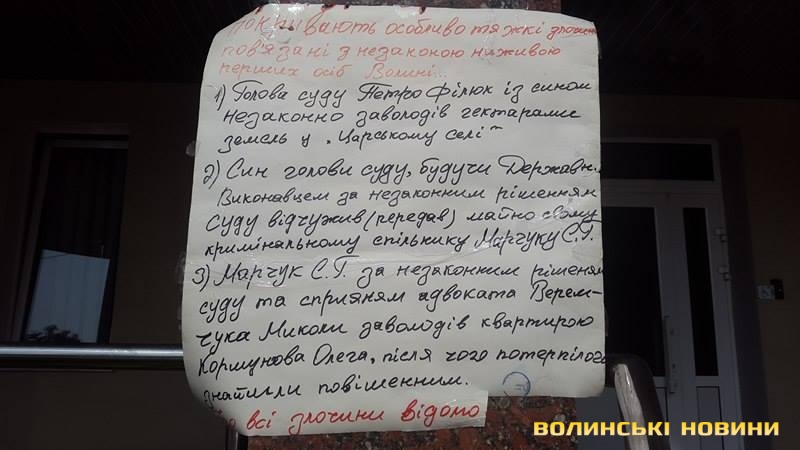 покривають особливо тяжкі злочини
пов'язані з незаконою наживою
перших осіб Волині...
1) Голова суду Петро Філюк із сином
незаконно заволодів гектарами
земель у „Царському селі"
2) Син голови суду, будучи Державн.
Виконавцем за незаконним рішенням
суду відчужив (передав) майно свому
кримінальному спільнику Марчуку С.Г.
3) Марчук С.Г. за незаконним рішеням
суду та сприяням адвоката Верем-
чука Миколи заволодів квартирою
Коршунова Олега, після чого потерпілого
знайшли повішенним.
всі злочини відомо
ВОЛИНСЬКІ НОВИНИ